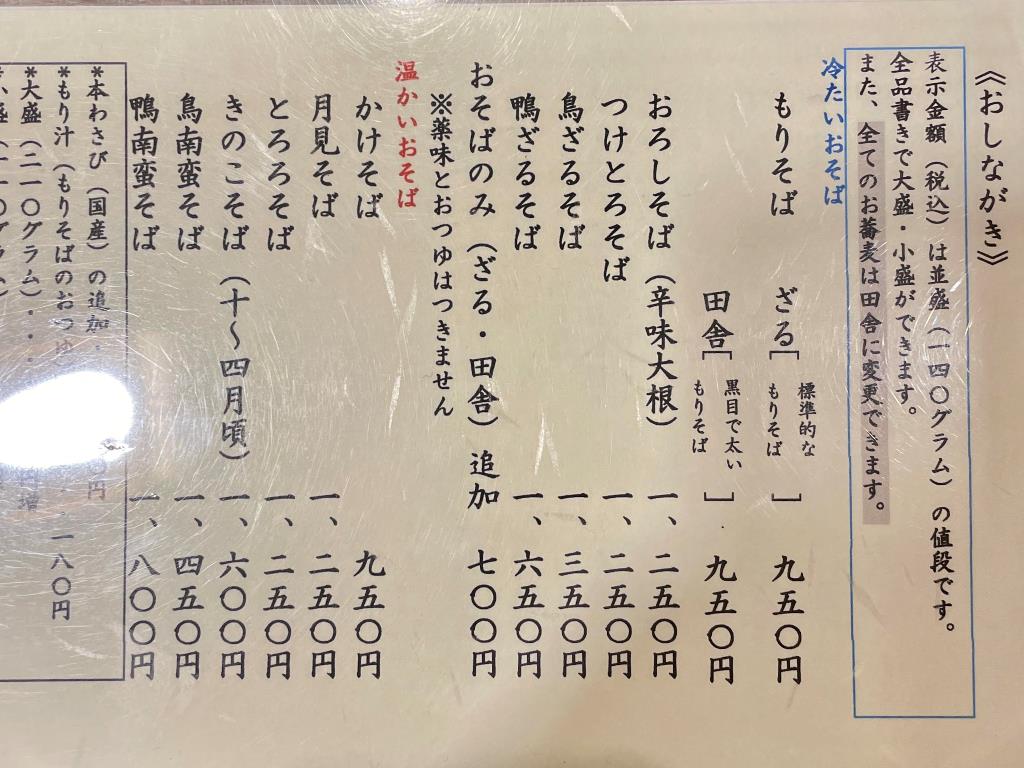 《おしながき》
表示金額（税込）は並盛（一四〇グラム）の値段です。
全品書きで大盛・小盛ができます。
また、全てのお蕎麦は田舎に変更できます。
冷たいおそば
もりそば ざる［標準的なもりそば］ 九五〇円
田舎［黒目で太いもりそば］ 九五〇円
おろしそば（辛味大根） 一、二五〇円
つけとろそば 一、二五〇円
鳥ざるそば 一、三五〇円
鴨ざるそば 一、六五〇円
おそばのみ（ざる・田舎）追加 七〇〇円
※薬味とおつゆはつきません
温かいおそば
かけそば 九五〇円
月見そば 一、二五〇円
とろろそば 一、二五〇円
きのこそば（十～四月頃） 一、六〇〇円
鳥南蛮そば 一、四五〇円
鴨南蛮そば 一、八〇〇円
*本わさび（国産）の追加・ 〇円
*もり汁（もりそばのおつゆ ・一八〇円
*大盛（二一〇グラム）・・・ 円増